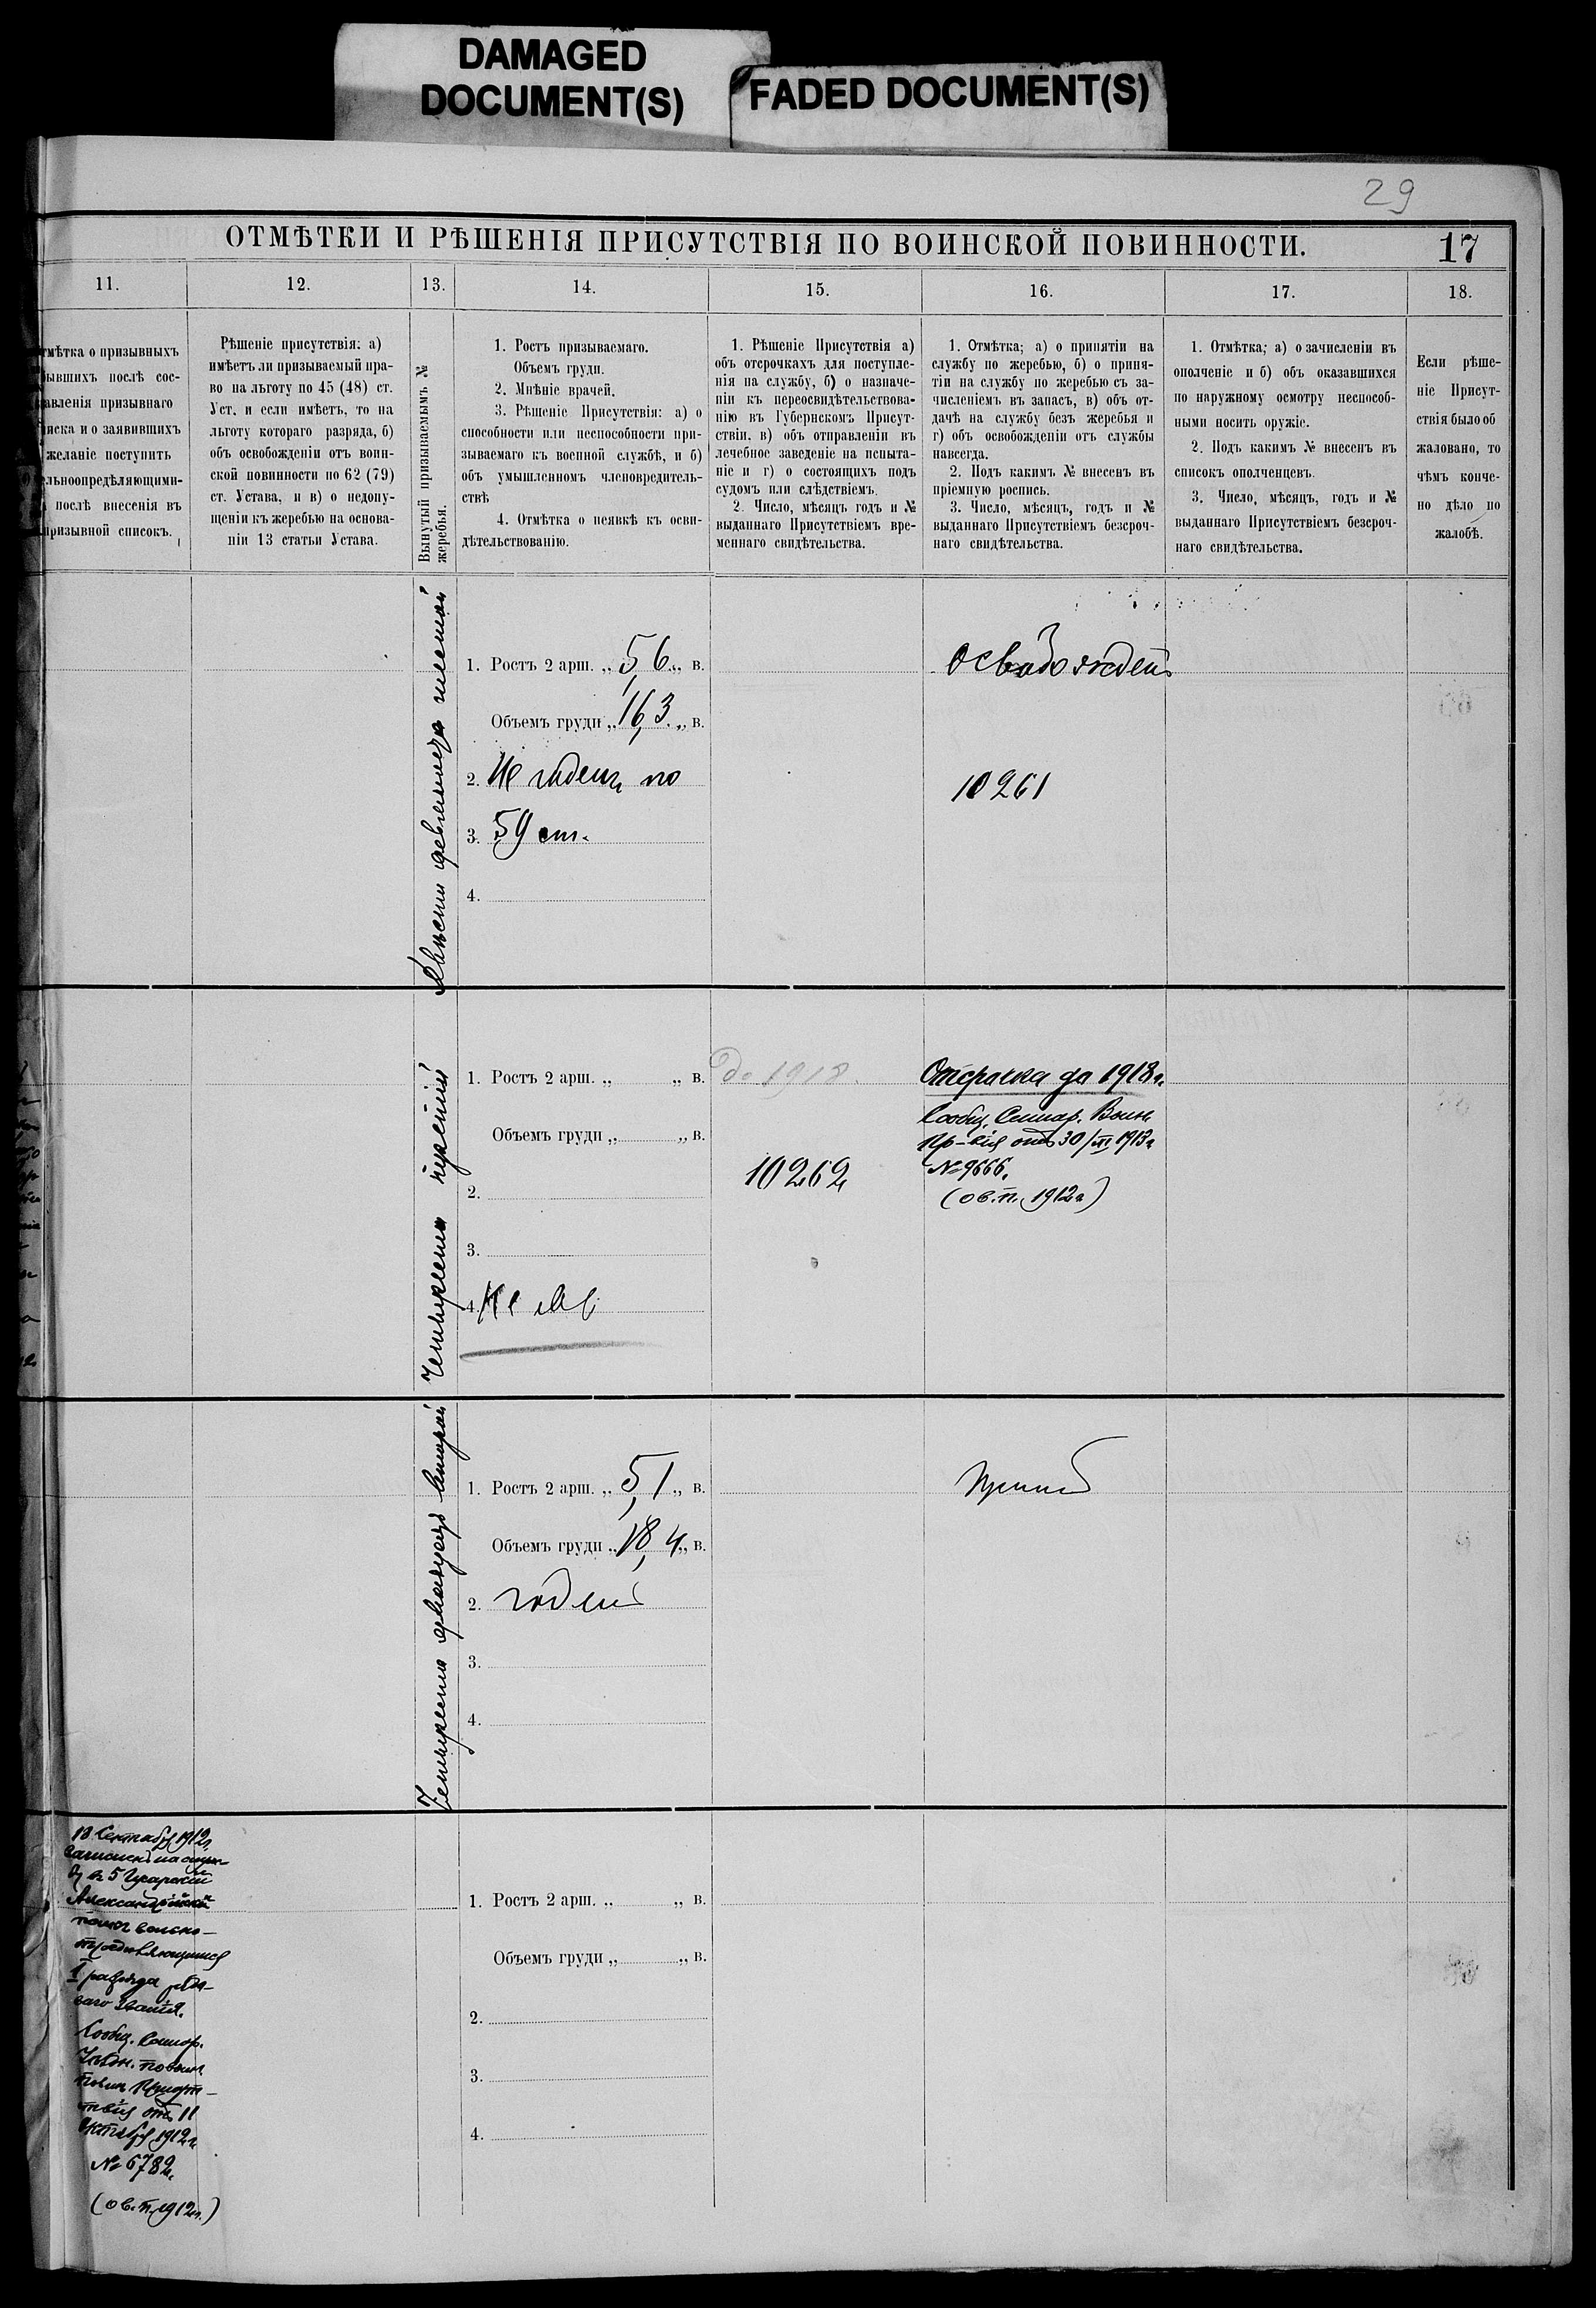 DAMAGED
DOCUMENT(S)
FADED DOCUMENT(S)
29
ОТМѢТКИ И РѢШЕНІЯ ПРИСУТСТВІЯ ПО ВОИНСКОЙ ПОВИННОСТИ.
17
11.
12.
13.
14.
15.
16.
17.
18.
тмѣтка о призывныхъ
бывшихъ послѣ сос-
тавленія призывнаго
писка и о заявившихъ
желаніе поступить
ольноопредѣляющими-
послѣ внесенія въ
призывной списокъ.
Рѣшеніе присутствія: а)
имѣетъ ли призываемый пра-
во на льготу по 45 (48) ст.
Уст. и если имѣетъ, то на
льготу котораго разряда, б)
объ освобожденіи отъ воин-
ской повинности по 62 (79)
ст. Устава, и в) о недопу-
щеніи къ жеребью на основа-
ніи 13 статьи Устава.
Вынутый призываемымъ №
жеребья.
1. Ростъ призываемаго.
Объемъ груди.
2. Мнѣніе врачей.
3. Рѣшеніе Присутствія: а) о
способности или неспособности при-
зываемаго къ военной службѣ, и б)
объ умышленномъ членовредитель-
ствѣ
4. Отмѣтка о неявкѣ къ осви-
дѣтельствованію.
1. Рѣшеніе Присутствія а)
объ отсрочкахъ для поступле-
нія на службу, б) о назначе-
ніи къ переосвидѣтельствова-
нію въ Губернскомъ Присут-
ствіи, в) объ отправленіи въ
лечебное заведеніе на испыта-
ніе и г) о состоящихъ подъ
судомъ или слѣдствіемъ.
2. Число, мѣсяцъ годъ и №
выданнаго Присутствіемъ вре-
меннаго свидѣтельства.
1. Отмѣтка; а) о принятіи на
службу по жеребью, б) о приня-
тіи на службу по жеребью съ за-
численіемъ въ запасъ, в) объ от-
дачѣ на службу безъ жеребья и
г) объ освобожденіи отъ службы
навсегда.
2. Подъ какимъ № внесенъ въ
пріемную роспись.
3. Число, мѣсяцъ, годъ и №
выданнаго Присутствіемъ безсроч-
наго свидѣтельства.
1. Отмѣтка; а) о зачисленіи въ
ополченіе и б) объ оказавшихся
по наружному осмотру неспособ-
ными носить оружіе.
2. Подъ какимъ № внесенъ въ
списокъ ополченцевъ.
3. Число, мѣсяцъ, годъ и №
выданнаго Присутствіемъ безсроч-
наго свидѣтельства.
Если рѣше-
ніе Присут-
ствія было об
жаловано, то
чѣмъ конче-
но дѣло по
жалобѣ.
1. Ростъ 2 арш. „ 5,6 „ в.
Объемъ груди „ 16,3 „ в.
2. Не годенъ по
3. 59 ст.
4.
освобожденъ
10261
Четыреста первый
1. Ростъ 2 арш. „ „ в.
Объемъ груди „ „ в.
2.
3.
4. Не яв
до 1918.
10262
Отсрочка до 1918 г.
Сообщ. Самар. Воин.
Пр-вія отъ 30/ 1913 г
№ 9666.
(ов. п. 1912 г)
Четыреста двадцать второй
1. Ростъ 2 арш. „ 5,1 „ в.
Объемъ груди „ 18,4 „ в.
2. годенъ
3.
4.
Принятъ
18 Сентября 1912 г
въ 5 Гусарскій
Александрійскій
полкъ вольно-
опредѣляющимся
I разряда рядо-
вого званія.
Сообщ. Самар.
Уѣздн. по воин.
повин. Присут-
ствія отъ 11
Октября 1912 г
№ 6782.
(ов. п. 1912 г.)
1. Ростъ 2 арш. „ „ в.
Объемъ груди „ „ в.
2.
3.
4.